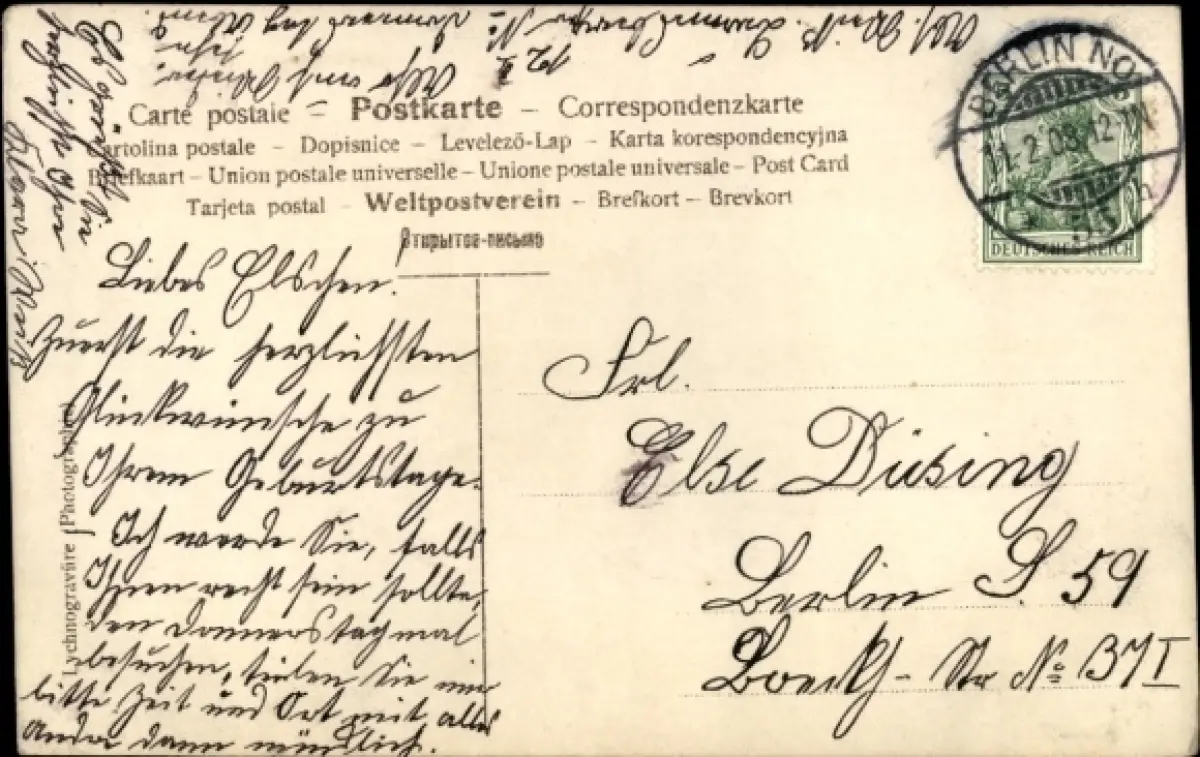 Carte postale – Postkarte – Correspondenzkarte
Cartolina postale – Dopisnice – Levelező-Lap – Karta korespondencyjna
Briefkaart – Union postale universelle – Unione postale universale – Post Card
Tarjeta postal – Weltpostverein – Brefkort – Brevkort
Открытое-письмо
BERLIN NO
11.2.08.12-1N
DEUTSCHES REICH
Liebes Elschen.
Zuerst die herzlichsten
Glückwünsche zu
Ihrem Geburtstage.
Ich werde Sie, falls
Ihnen recht sein sollte,
den Donnerstag mal
besuchen, teilen Sie mir
bitte Zeit und Ort mit, alles
Andre dann mündlich.
Es grüßt Sie
herzlichst Ihre
Frl.
Else Düsing
Berlin S. 59
Boeckh-Str No 37 I
Lychnogravüre Photographie